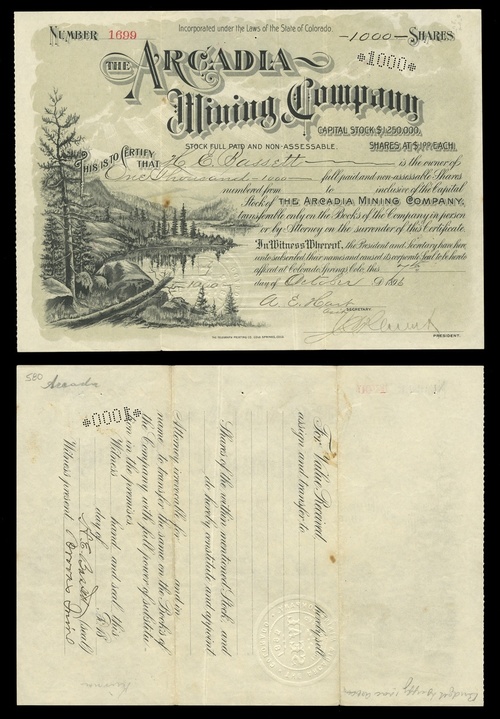 NUMBER 1699
Incorporated under the Laws of the State of Colorado.
-1000- SHARES
*1000*
THE ARCADIA
Mining Company
CAPITAL STOCK $1,250,000.
STOCK FULL PAID AND NON-ASSESSABLE.
SHARES AT $1.00 EACH.
THIS IS TO CERTIFY THAT H. E. Bassett is the owner of
One Thousand -1000- full paid and non-assessable Shares
numbered from to inclusive of the Capital
Stock of THE ARCADIA MINING COMPANY,
transferable only on the Books of the Company in person
or by Attorney on the surrender of this Certificate.
In Witness Whereof, the President and Secretary have hereunto subscribed their names and caused its corporate Seal to be hereto
affixed at Colorado Springs, Colo. this
day of October 1896
A. E. Hart
SECRETARY.
PRESIDENT.
580
Arcadia
*1000*
For Value Received hereby sell
assign and transfer to
Shares of the within mentioned Stock, and
do hereby constitute and appoint
Attorney irrevocably for and in
name to transfer the same on the Books of
the Company with full power of substitution in the premises
Witness hand and seal this
day of 18
(seal)
Witness present